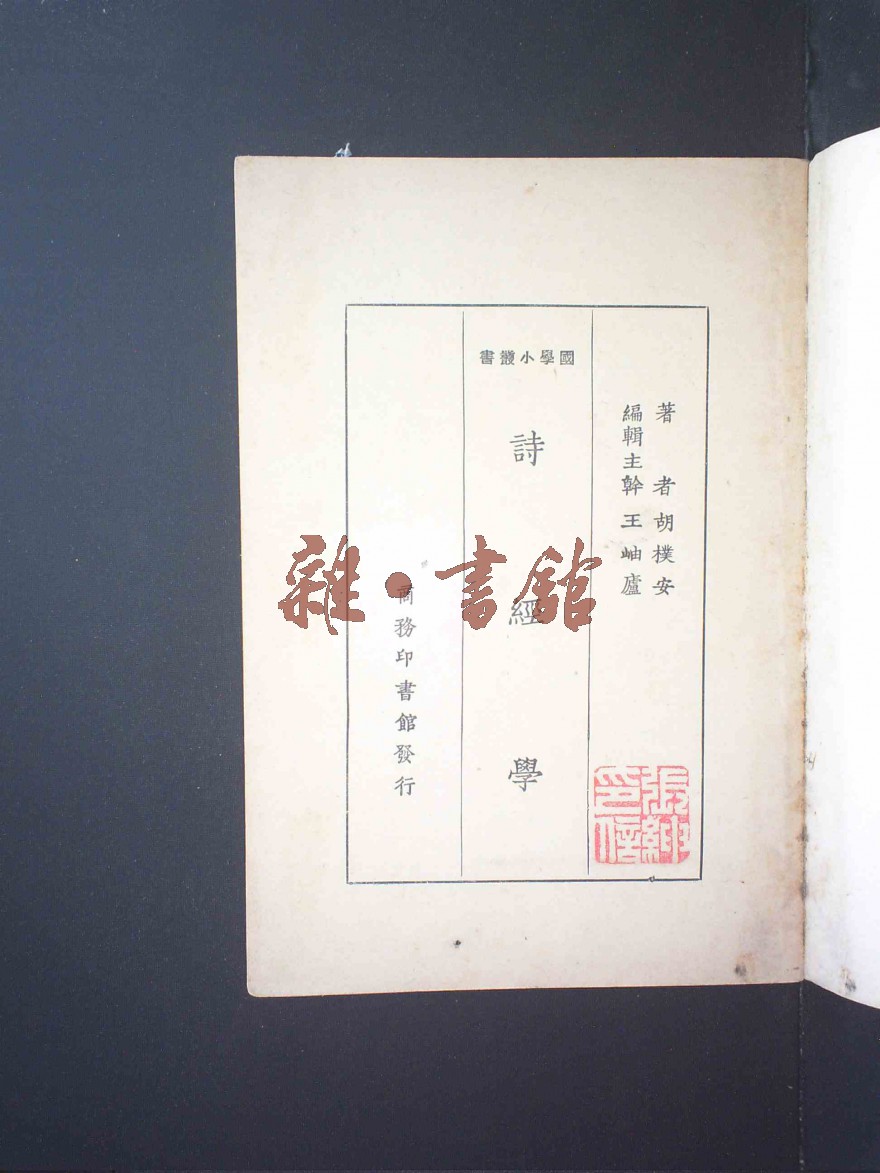 著者胡樸安
編輯主幹王岫廬
國學小叢書
詩經學
商務印書館發行
雜·書館
張紳印信